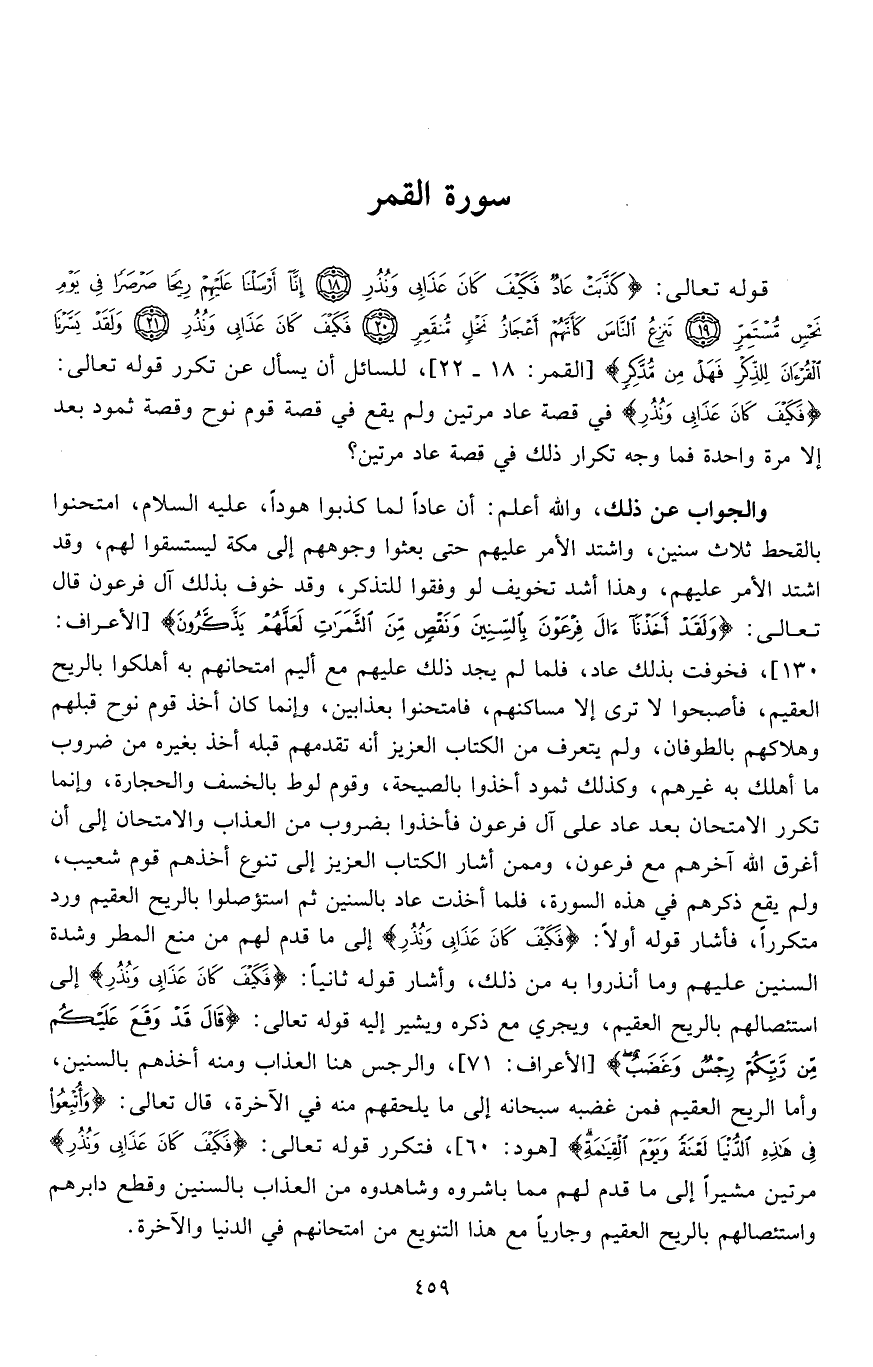 سورة القمر
قوله تعالى: ﴿كَذَّبَتْ عَادٌ فَكَيْفَ كَانَ عَذَابِى وَنُذُرِ ۝١٨ إِنَّآ أَرْسَلْنَا عَلَيْهِمْ رِيحًا صَرْصَرًا فِى يَوْمِ
نَحْسٍ مُّسْتَمِرٍّ ۝١٩ تَنزِعُ ٱلنَّاسَ كَأَنَّهُمْ أَعْجَازُ نَخْلٍ مُّنقَعِرٍ ۝٢٠ فَكَيْفَ كَانَ عَذَابِى وَنُذُرِ ۝٢١ وَلَقَدْ يَسَّرْنَا
ٱلْقُرْءَانَ لِلذِّكْرِ فَهَلْ مِن مُّدَّكِرٍ﴾ [القمر: ١٨ ـ ٢٢]، للسائل أن يسأل عن تكرر قوله تعالى:
﴿فَكَيْفَ كَانَ عَذَابِى وَنُذُرِ﴾ في قصة عاد مرتين ولم يقع في قصة قوم نوح وقصة ثمود بعد
إلا مرة واحدة فما وجه تكرار ذلك في قصة عاد مرتين؟
والجواب عن ذلك، والله أعلم: أن عاداً لما كذبوا هوداً، عليه السلام، امتحنوا
بالقحط ثلاث سنين، واشتد الأمر عليهم حتى بعثوا وجوههم إلى مكة ليستسقوا لهم، وقد
اشتد الأمر عليهم، وهذا أشد تخويف لو وفقوا للتذكر، وقد خوف بذلك آل فرعون قال
تعالى: ﴿وَلَقَدْ أَخَذْنَآ ءَالَ فِرْعَوْنَ بِٱلسِّنِينَ وَنَقْصٍ مِّنَ ٱلثَّمَرَٰتِ لَعَلَّهُمْ يَذَّكَّرُونَ﴾ [الأعراف:
١٣٠]، فخوفت بذلك عاد، فلما لم يجد ذلك عليهم مع أليم امتحانهم به أهلكوا بالريح
العقيم، فأصبحوا لا ترى إلا مساكنهم، فامتحنوا بعذابين، وإنما كان أخذ قوم نوح قبلهم
وهلاكهم بالطوفان، ولم يتعرف من الكتاب العزيز أنه تقدمهم قبله أخذ بغيره من ضروب
ما أهلك به غيرهم، وكذلك ثمود أخذوا بالصيحة، وقوم لوط بالخسف والحجارة، وإنما
تكرر الامتحان بعد عاد على آل فرعون فأخذوا بضروب من العذاب والامتحان إلى أن
أغرق الله آخرهم مع فرعون، وممن أشار الكتاب العزيز إلى تنوع أخذهم قوم شعيب،
ولم يقع ذكرهم في هذه السورة، فلما أخذت عاد بالسنين ثم استؤصلوا بالريح العقيم ورد
متكرراً، فأشار قوله أولاً: ﴿فَكَيْفَ كَانَ عَذَابِى وَنُذُرِ﴾ إلى ما قدم لهم من منع المطر وشدة
السنين عليهم وما أنذروا به من ذلك، وأشار قوله ثانياً: ﴿فَكَيْفَ كَانَ عَذَابِى وَنُذُرِ﴾ إلى
استئصالهم بالريح العقيم، ويجري مع ذكره ويشير إليه قوله تعالى: ﴿قَالَ قَدْ وَقَعَ عَلَيْكُم
مِّن رَّبِّكُمْ رِجْسٌ وَغَضَبٌۖ﴾ [الأعراف: ٧١]، والرجس هنا العذاب ومنه أخذهم بالسنين،
وأما الريح العقيم فمن غضبه سبحانه إلى ما يلحقهم منه في الآخرة، قال تعالى: ﴿وَأُتْبِعُوا۟
فِى هَٰذِهِ ٱلدُّنْيَا لَعْنَةً وَيَوْمَ ٱلْقِيَٰمَةِۗ﴾ [هود: ٦٠]، فتكرر قوله تعالى: ﴿فَكَيْفَ كَانَ عَذَابِى وَنُذُرِ﴾
مرتين مشيراً إلى ما قدم لهم مما باشروه وشاهدوه من العذاب بالسنين وقطع دابرهم
واستئصالهم بالريح العقيم وجارياً مع هذا التنويع من امتحانهم في الدنيا والآخرة.
٤٥٩